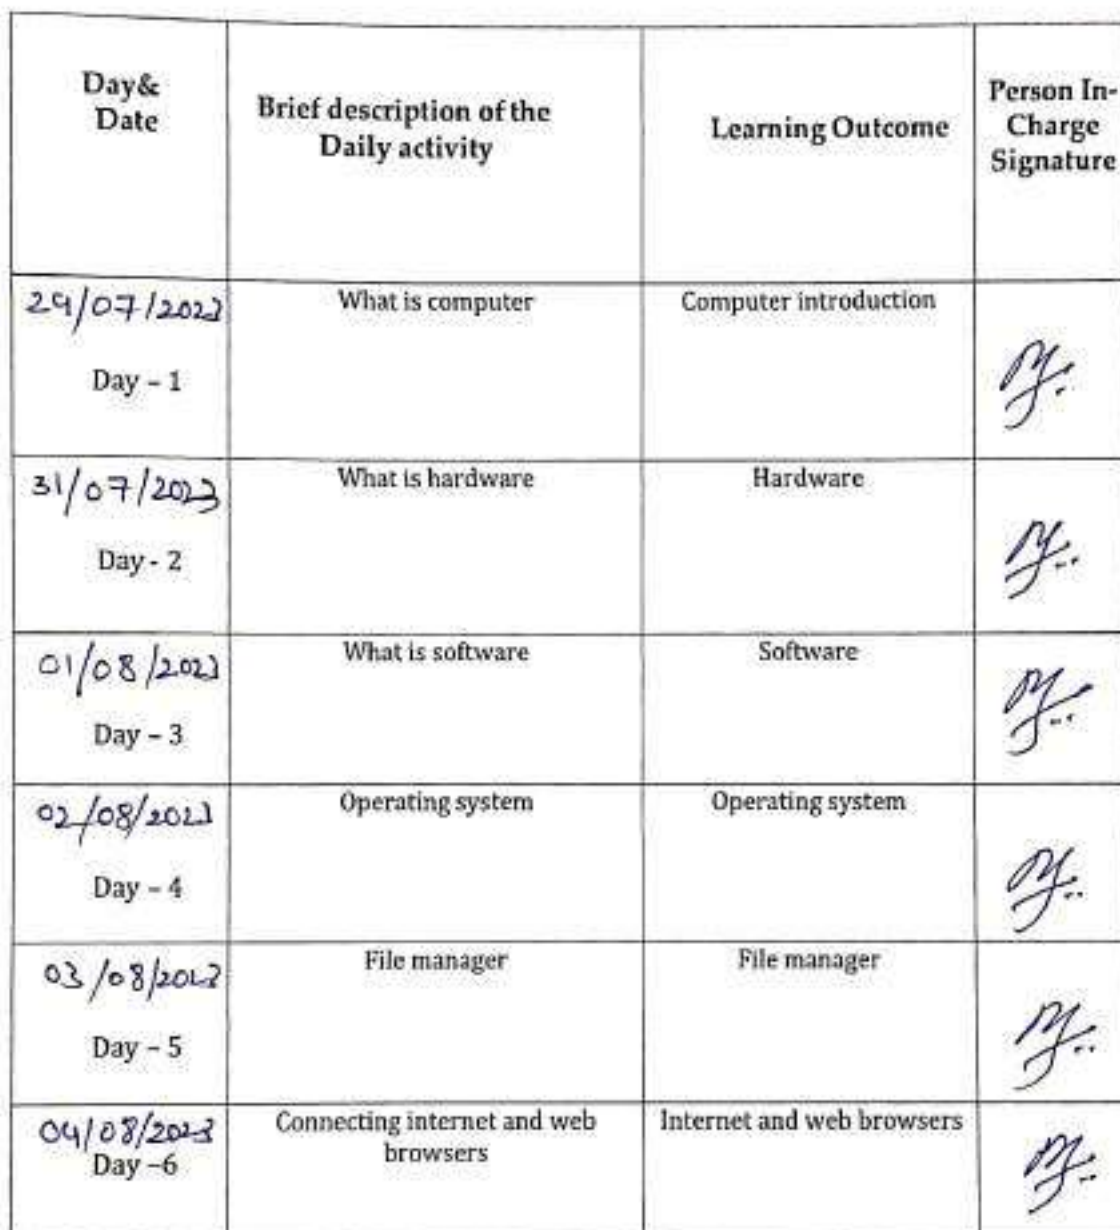 Day&
Date
Brief description of the
Daily activity
Learning Outcome
Person In-
Charge
Signature
29/07/2023
Day – 1
What is computer
Computer introduction
31/07/2023
Day - 2
What is hardware
Hardware
01/08/2023
Day – 3
What is software
Software
02/08/2023
Day – 4
Operating system
Operating system
03/08/2023
Day – 5
File manager
File manager
04/08/2023
Day –6
Connecting internet and web
browsers
Internet and web browsers